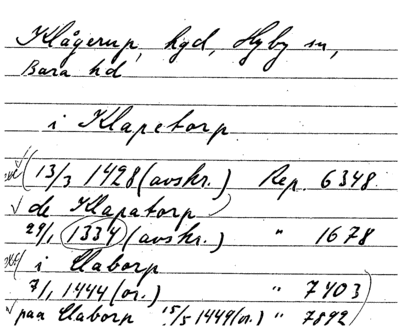 Klågerup, hgd, Hyby sn,
Bara hd
i Klapetorp
13/3 1428 (avskr.) Rep. 6348.
de Klapatorp
29/1 1334 (avskr.) " 1678
i Claborp
7/1 1444 (or.) " 7403
paa Claborp 15/5 1449 (or.) " 7892